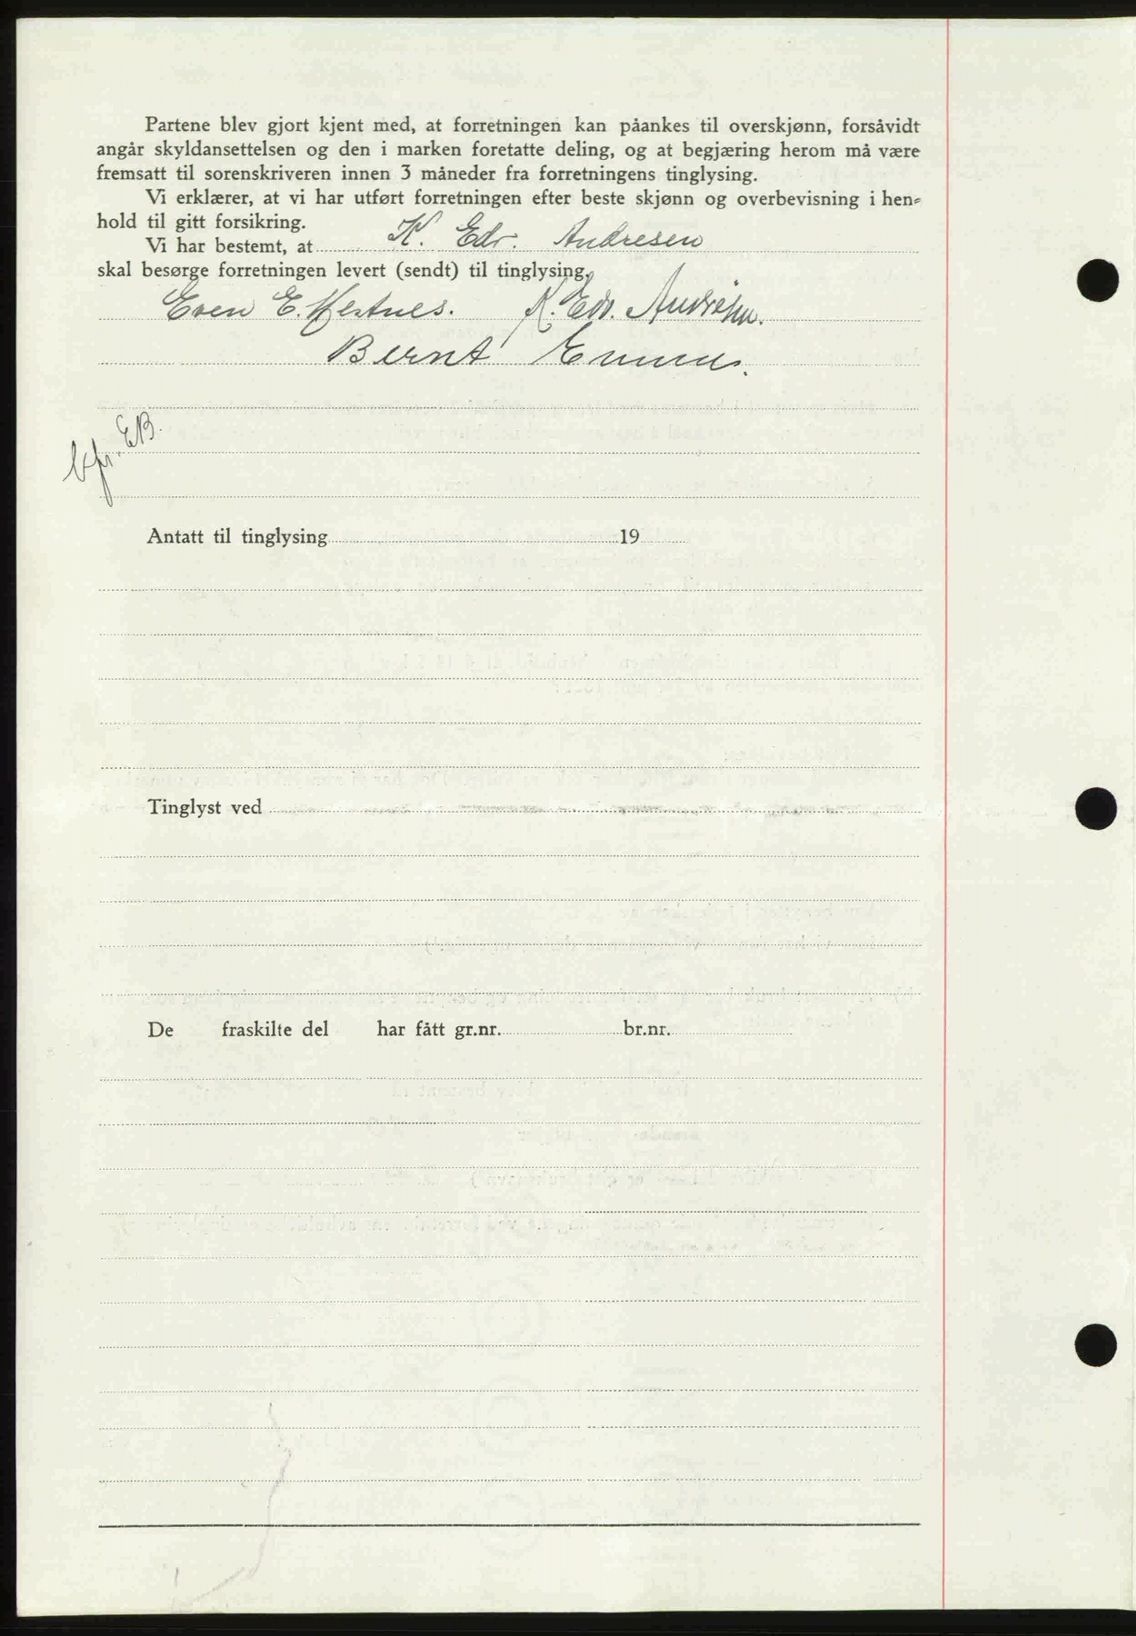 Partene blev gjort kjent med, at forretningen kan påankes til overskjønn, forsåvidt
angår skyldansettelsen og den i marken foretatte deling, og at begjæring herom må være
fremsatt til sorenskriveren innen 3 måneder fra forretningens tinglysing.
Vi erklærer, at vi har utført forretningen efter beste skjønn og overbevisning i hen-
hold til gitt forsikring.
Vi har bestemt, at K. Edv. Andresen
skal besørge forretningen levert (sendt) til tinglysing.
Even E. Hestnes. K. Edv. Andresen.
Bernt
EB.
Antatt til tinglysing 19
Tinglyst ved
De fraskilte del har fått gr.nr. br.nr.